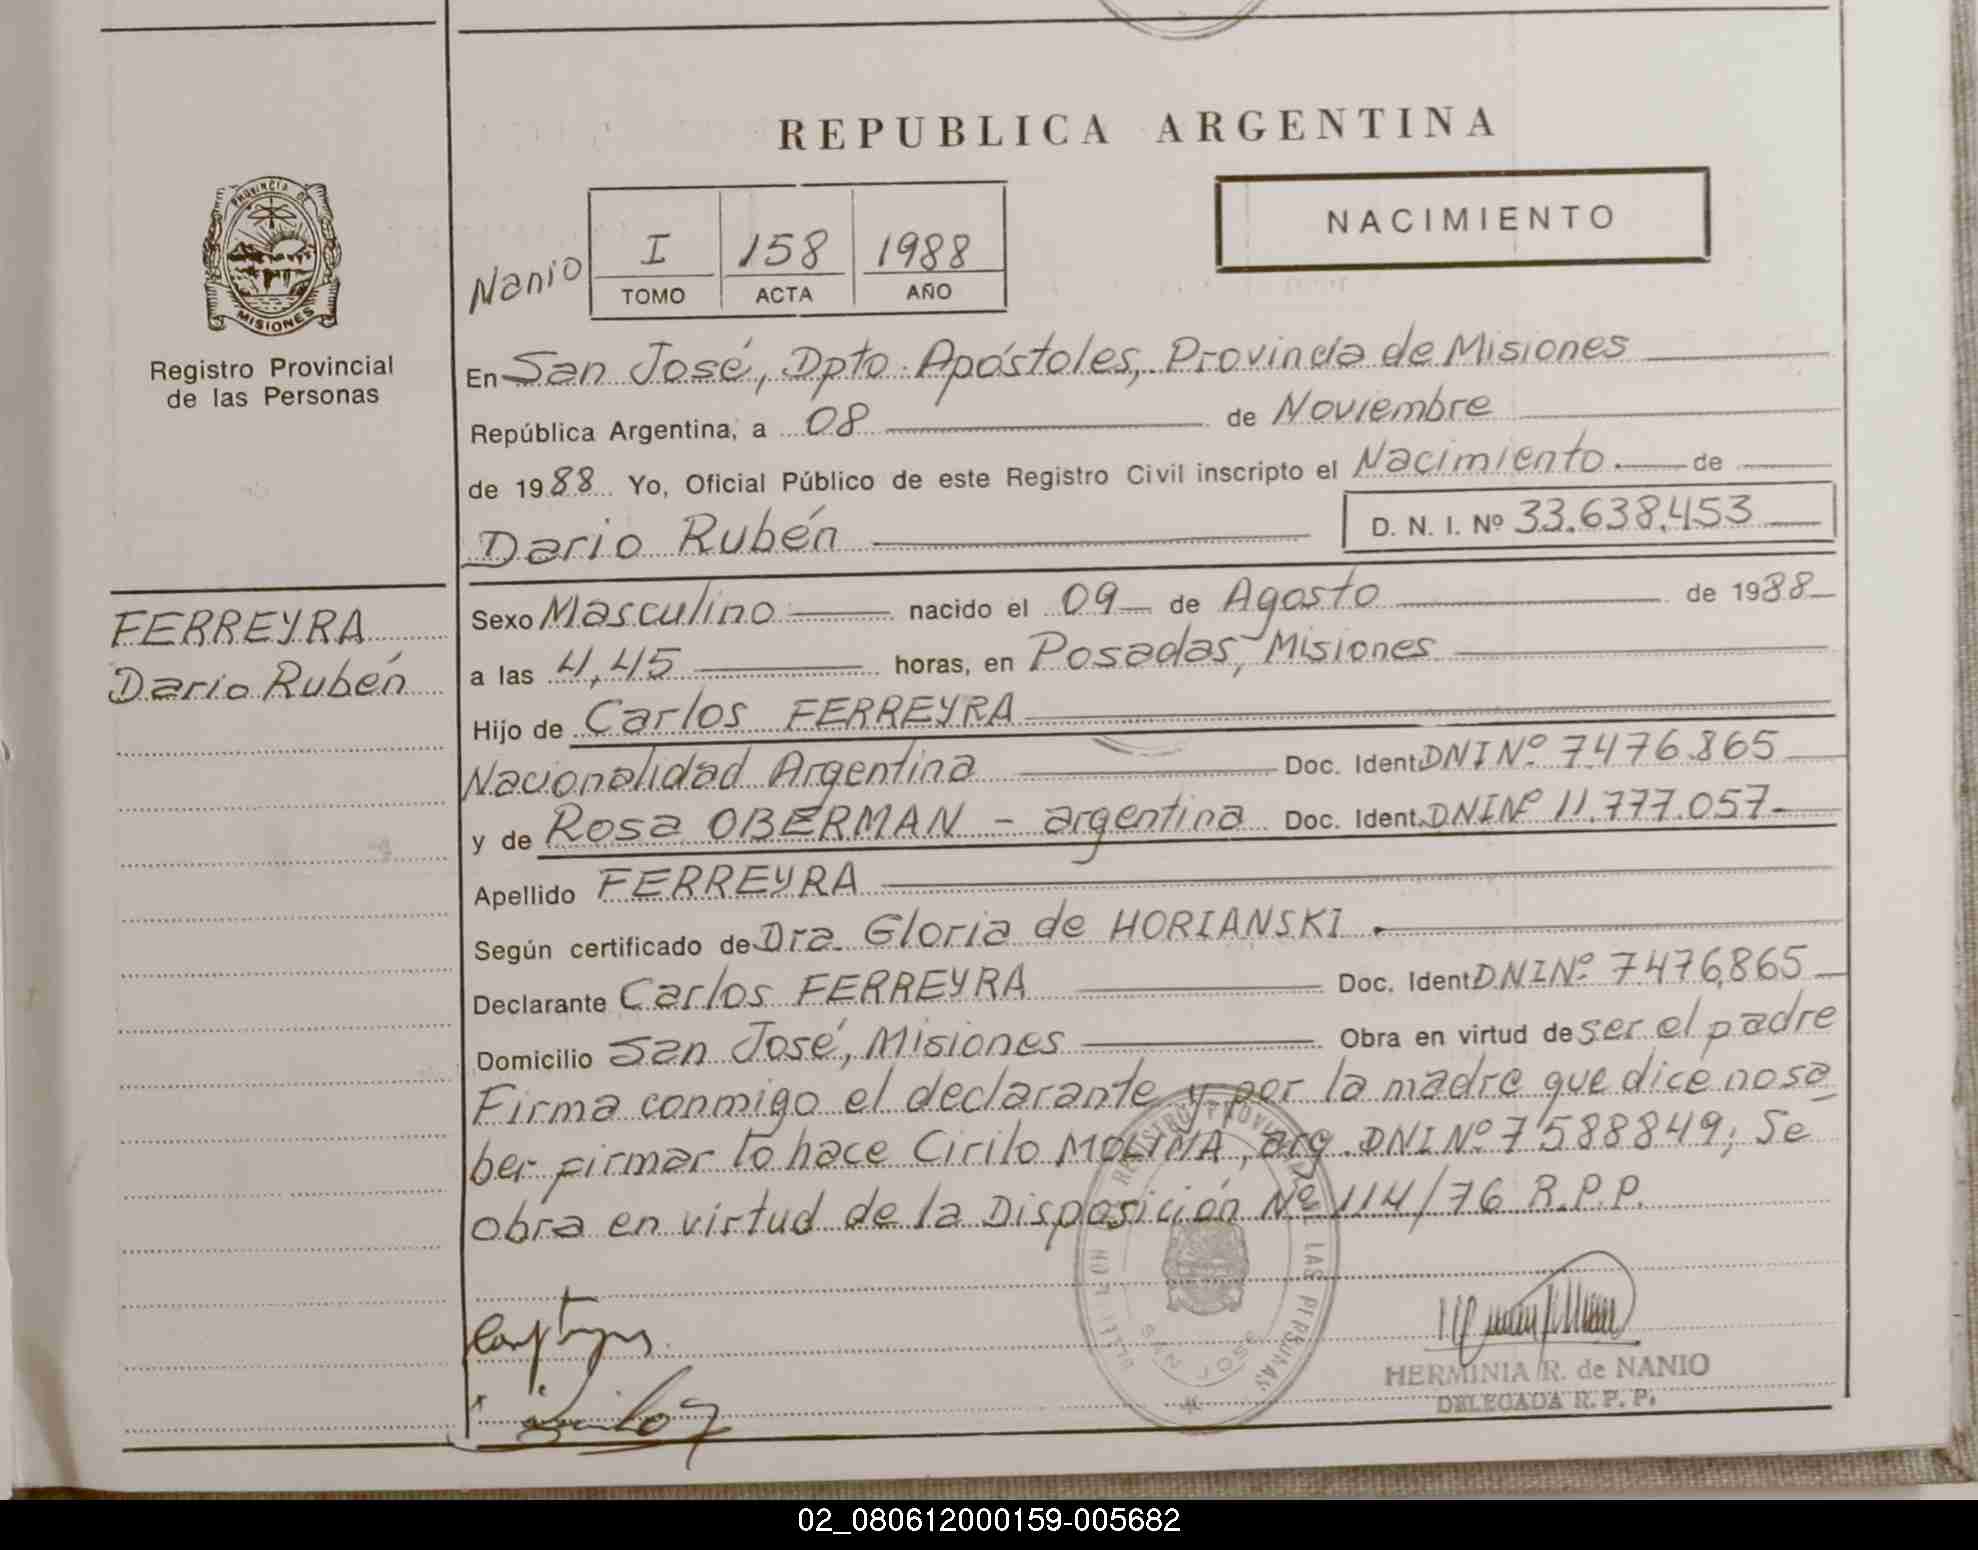 REPUBLICA ARGENTINA
NACIMIENTO
Nanio
I 158 1988
TOMO ACTA AÑO
PROVINCIA DE MISIONES
Registro Provincial
de las Personas
FERREYRA
Dario Rubén
En San José, Dpto. Apóstoles, Provincia de Misiones
República Argentina, a 08 de Noviembre
de 1988 Yo, Oficial Público de este Registro Civil inscripto el Nacimiento de
Dario Rubén D. N. I. Nº 33.638.453
Sexo Masculino nacido el 09 de Agosto de 1988
a las 4,45 horas, en Posadas, Misiones
Hijo de Carlos FERREYRA
Nacionalidad Argentina Doc. Ident. DNI Nº 7476.865
y de Rosa OBERMAN - argentina Doc. Ident. DNI Nº 11.777.057-
Apellido FERREYRA
Según certificado de Dra. Gloria de HORIANSKI.
Declarante Carlos FERREYRA Doc. Ident DNI Nº 7476,865
Domicilio San José, Misiones Obra en virtud de ser el padre
Firma conmigo el declarante y por la madre que dice no sa
ber firmar lo hace Cirilo MOLINA, arg. DNI Nº 7588849; Se
obra en virtud de la Disposición Nº 114/76 R.P.P.
REGISTRO PROVINCIAL DE LAS PERSONAS
SAN JOSE
HERMINIA R. de NANIO
DELEGADA R. P. P.
02_080612000159-005682